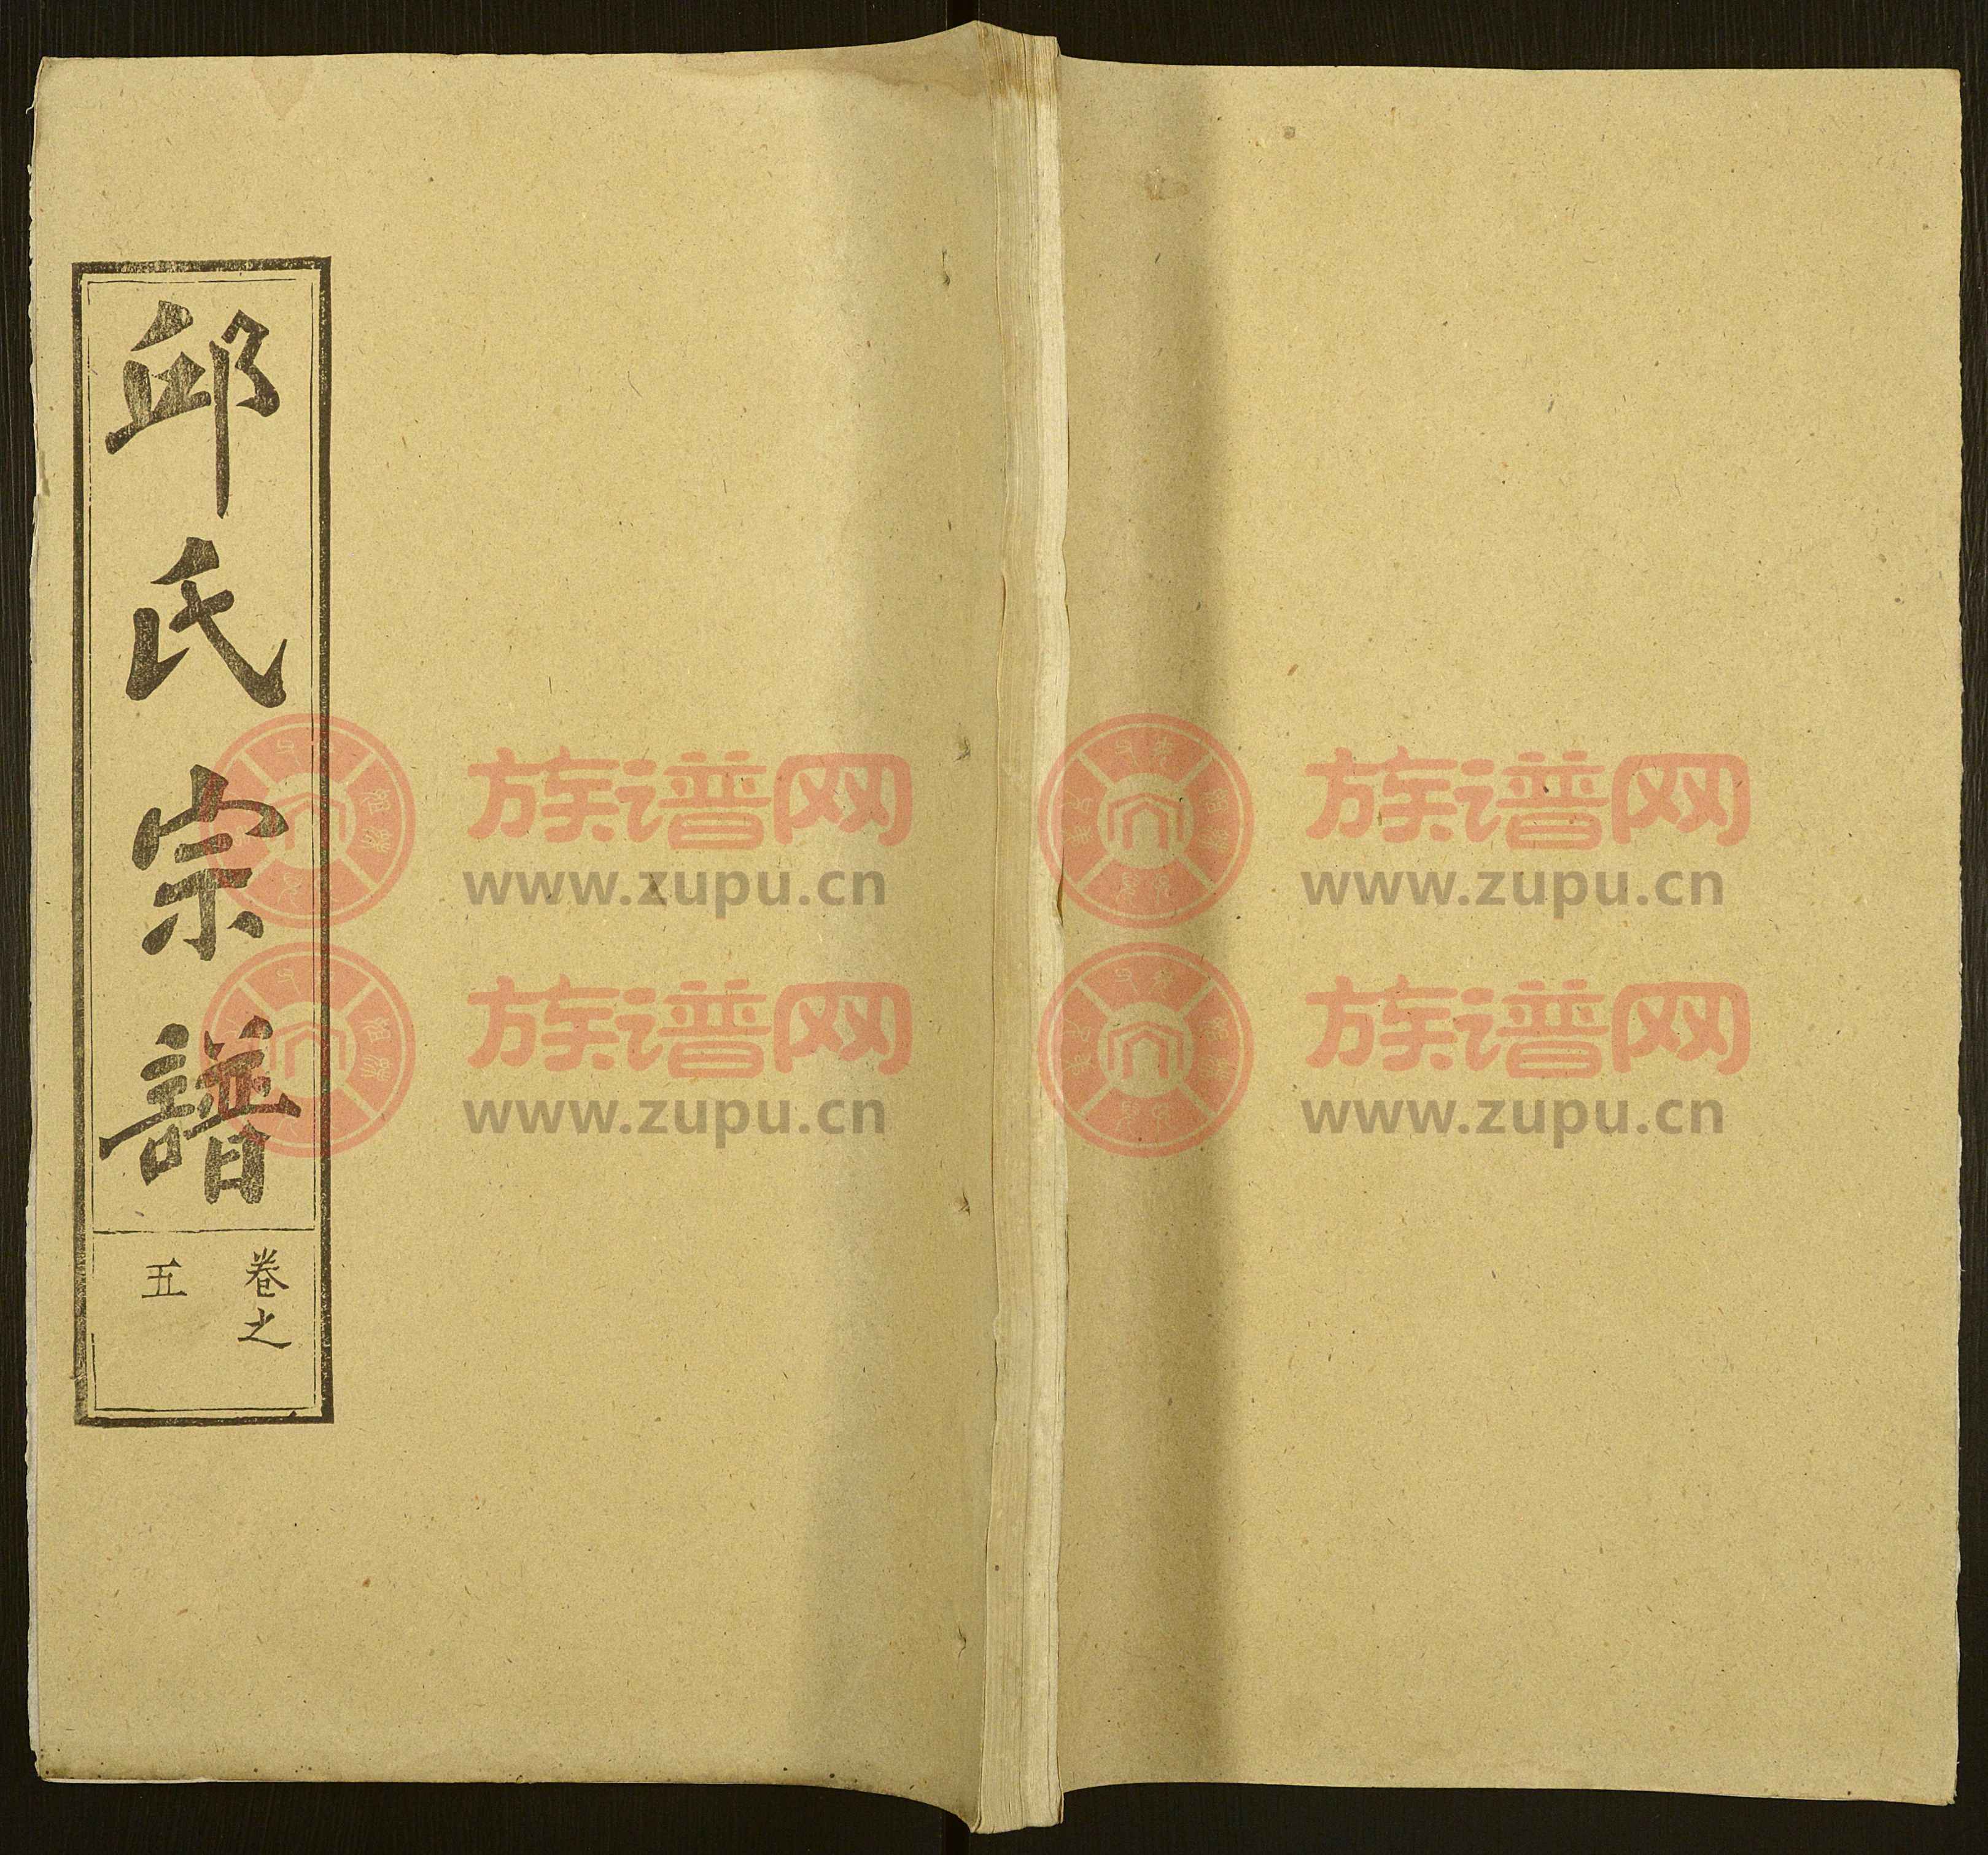 邱氏宗譜
卷之
五
族谱网
www.zupu.cn
族谱网
www.zupu.cn
族谱网
www.zupu.cn
族谱网
www.zupu.cn